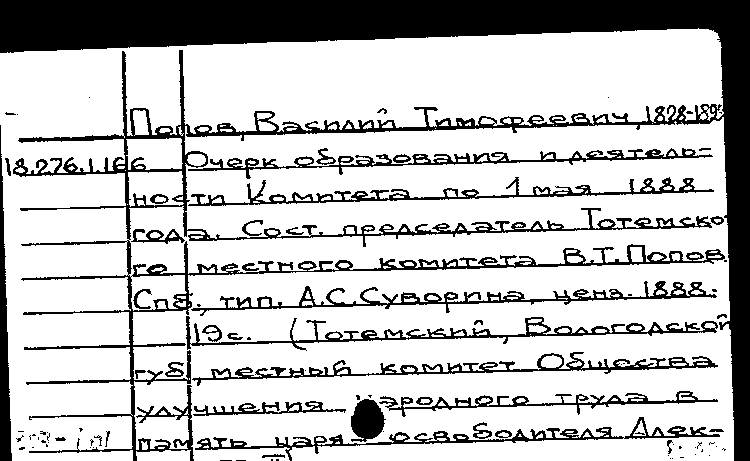 Попов, Василий Тимофеевич, 1828-189
18.276.1.166 Очерк образования и деятель=
ности Комитета по 1 мая 1888
года. Сост. председатель Тотемско
го местного комитета В.Т.Попов
Спб., тип. А.С.Суворина, ценз. 1888.
19с. (Тотемский, Вологодской
губ., местный комитет Общества
улучшения народного труда в
память царя-освободителя Алек=